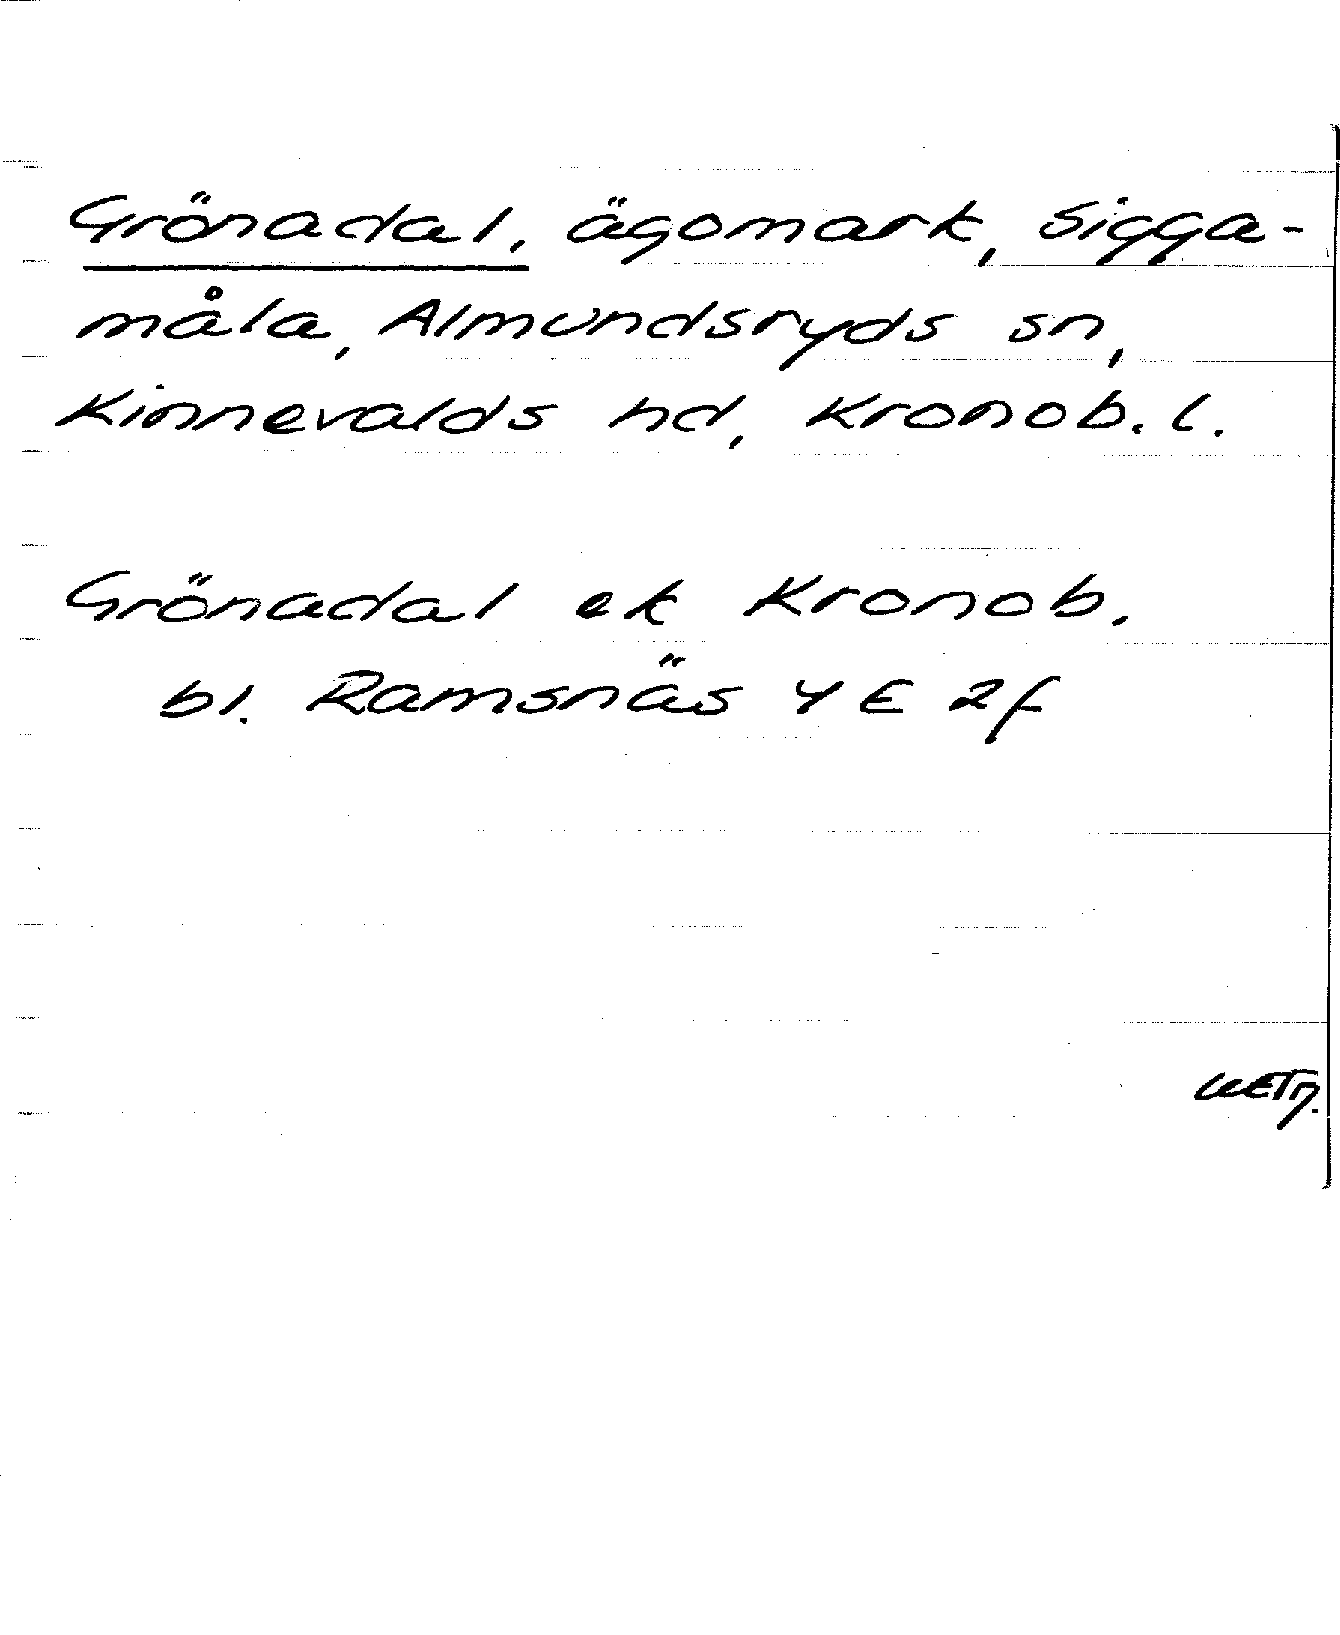 Grönadal, ägomark, Sigga-
måla, Almundsryds sn,
Kinnevalds hd, Kronob. l.
Grönadal ek Kronob.
bl. Ramsnäs 4 E 2f